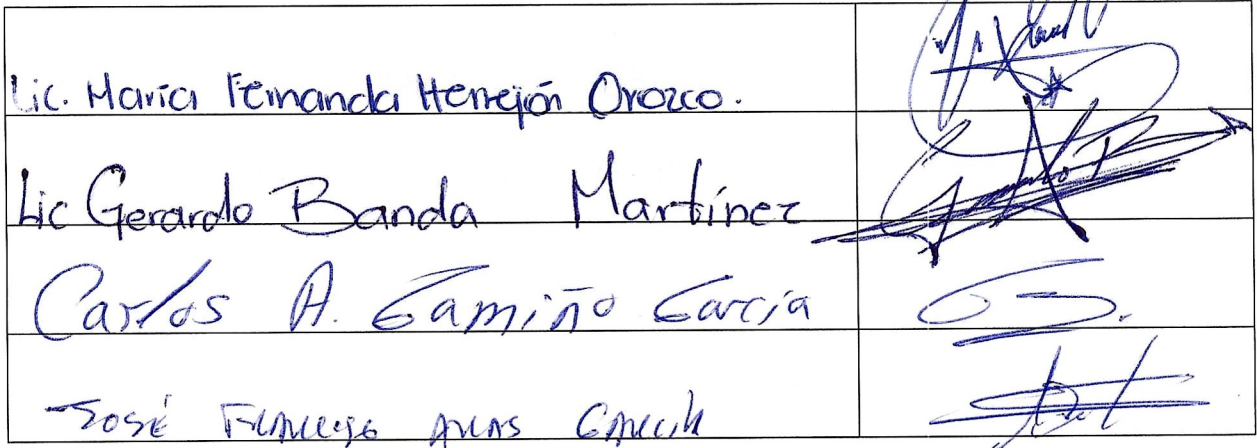 Lic. María Fernanda Herrejón Orozco.
Lic Gerardo Banda Martínez
Carlos A. Gamiño García
José García